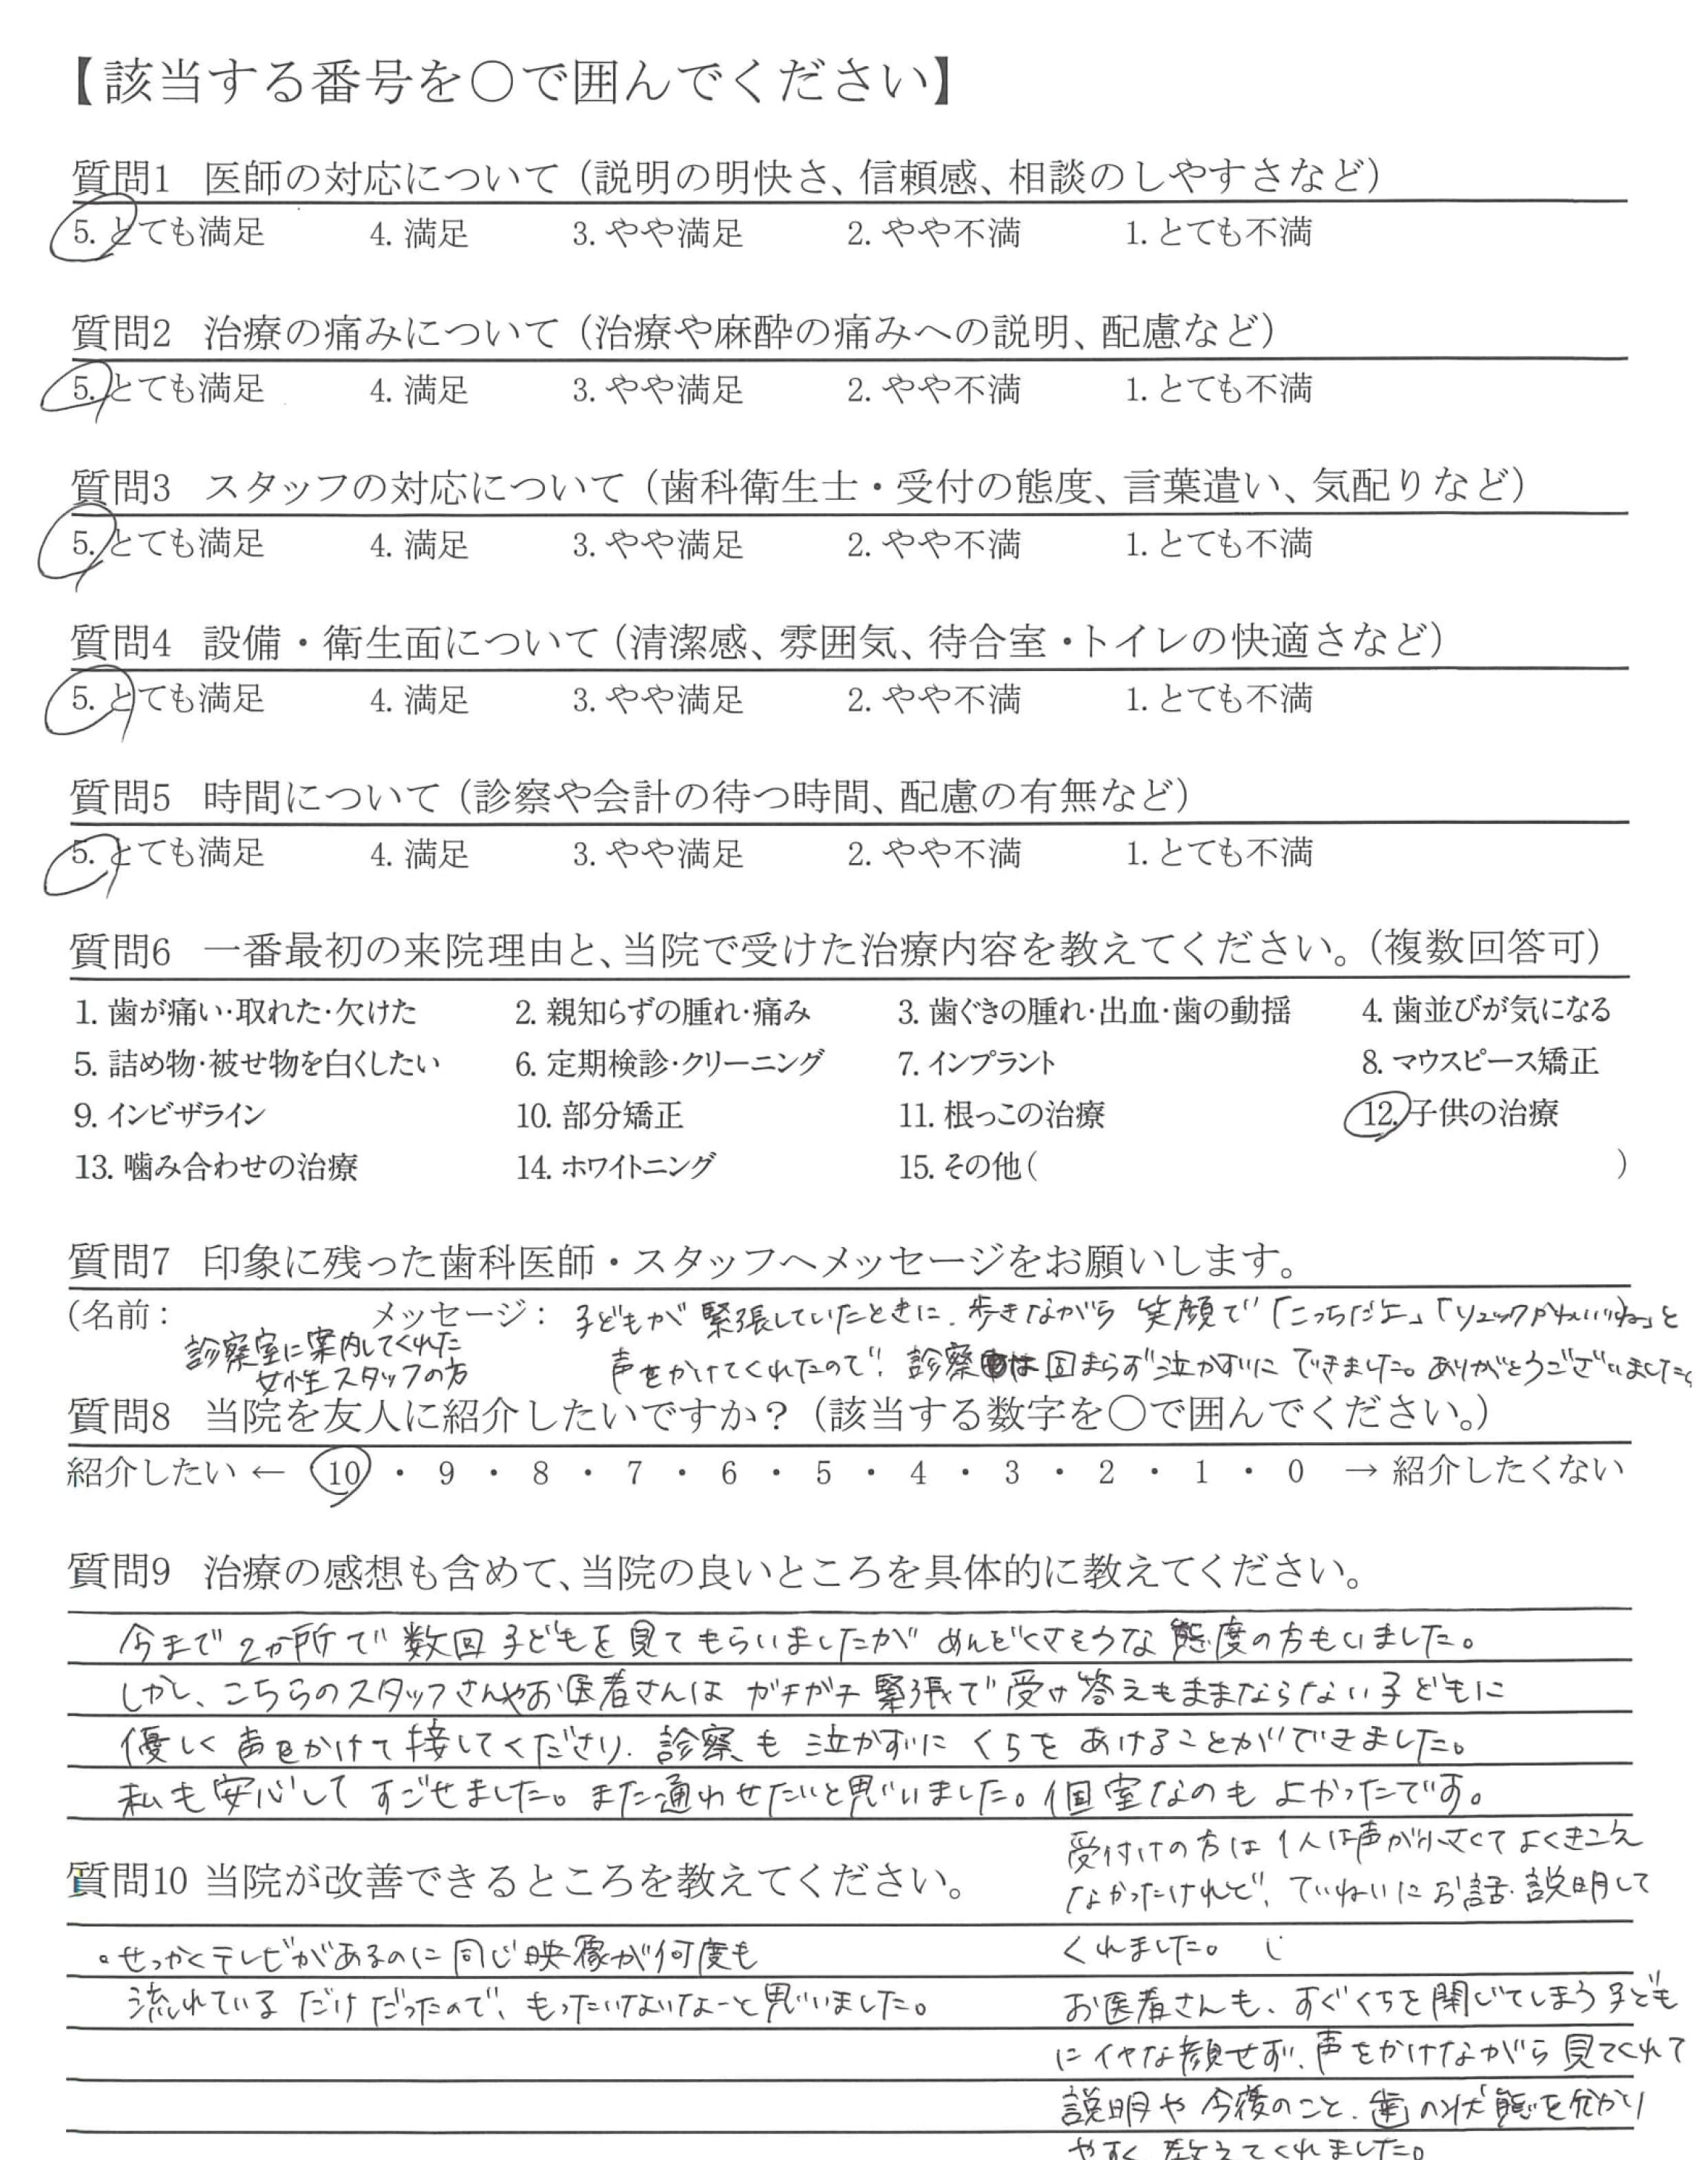 【該当する番号を○で囲んでください】
質問1 医師の対応について（説明の明快さ、信頼感、相談のしやすさなど）
5. とても満足 4. 満足 3. やや満足 2. やや不満 1. とても不満
質問2 治療の痛みについて（治療や麻酔の痛みへの説明、配慮など）
5. とても満足 4. 満足 3. やや満足 2. やや不満 1. とても不満
質問3 スタッフの対応について（歯科衛生士・受付の態度、言葉遣い、気配りなど）
5. とても満足 4. 満足 3. やや満足 2. やや不満 1. とても不満
質問4 設備・衛生面について（清潔感、雰囲気、待合室・トイレの快適さなど）
5. とても満足 4. 満足 3. やや満足 2. やや不満 1. とても不満
質問5 時間について（診察や会計の待つ時間、配慮の有無など）
5. とても満足 4. 満足 3. やや満足 2. やや不満 1. とても不満
質問6 一番最初の来院理由と、当院で受けた治療内容を教えてください。（複数回答可）
1. 歯が痛い・取れた・欠けた 2. 親知らずの腫れ・痛み 3. 歯ぐきの腫れ・出血・歯の動揺 4. 歯並びが気になる
5. 詰め物・被せ物を白くしたい 6. 定期検診・クリーニング 7. インプラント 8. マウスピース矯正
9. インビザライン 10. 部分矯正 11. 根っこの治療 12. 子供の治療
13. 噛み合わせの治療 14. ホワイトニング 15. その他（ ）
質問7 印象に残った歯科医師・スタッフへメッセージをお願いします。
（名前： メッセージ： 子どもが緊張していたときに、歩きながら 笑顔で「こっちだよ」「リュックかわいいね」と
診察室に案内してくれた
女性スタッフの方
声をかけてくれたので！診察は 固まらず泣かずに できました。ありがとうございました。
質問8 当院を友人に紹介したいですか？（該当する数字を○で囲んでください。）
紹介したい ← 10 ・ 9 ・ 8 ・ 7 ・ 6 ・ 5 ・ 4 ・ 3 ・ 2 ・ 1 ・ 0 → 紹介したくない
質問9 治療の感想も含めて、当院の良いところを具体的に教えてください。
今まで2か所で 数回 子どもを見てもらいましたが めんどくさそうな態度の方もいました。
しかし、こちらのスタッフさんやお医者さんは ガチガチ緊張で受け答えもままならない子どもに
優しく声をかけて接してくださり、診察も 泣かずに くちを あけることができました。
私も安心して すごせました。また通わせたいと思いました。個室なのも よかったです。
受付けの方は 1人は声が小さくてよくきこえ
なかったけれど、ていねいにお話・説明して
くれました。
お医者さんも、すぐくちを閉じてしまう子ども
にイヤな顔せず、声をかけながら見てくれて
説明や今後のこと、歯の状態を分かり
やすく教えてくれました。
質問10 当院が改善できるところを教えてください。
。せっかくテレビがあるのに同じ映像が何度も
流れているだけだったので、もったいないなーと思いました。